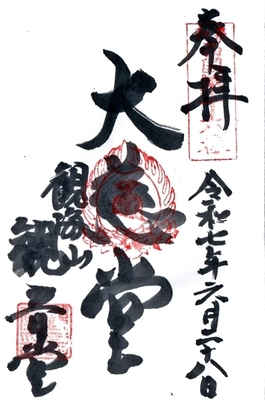 奉拝
令和七年六月二十八日
大悲堂
観海山
観音堂